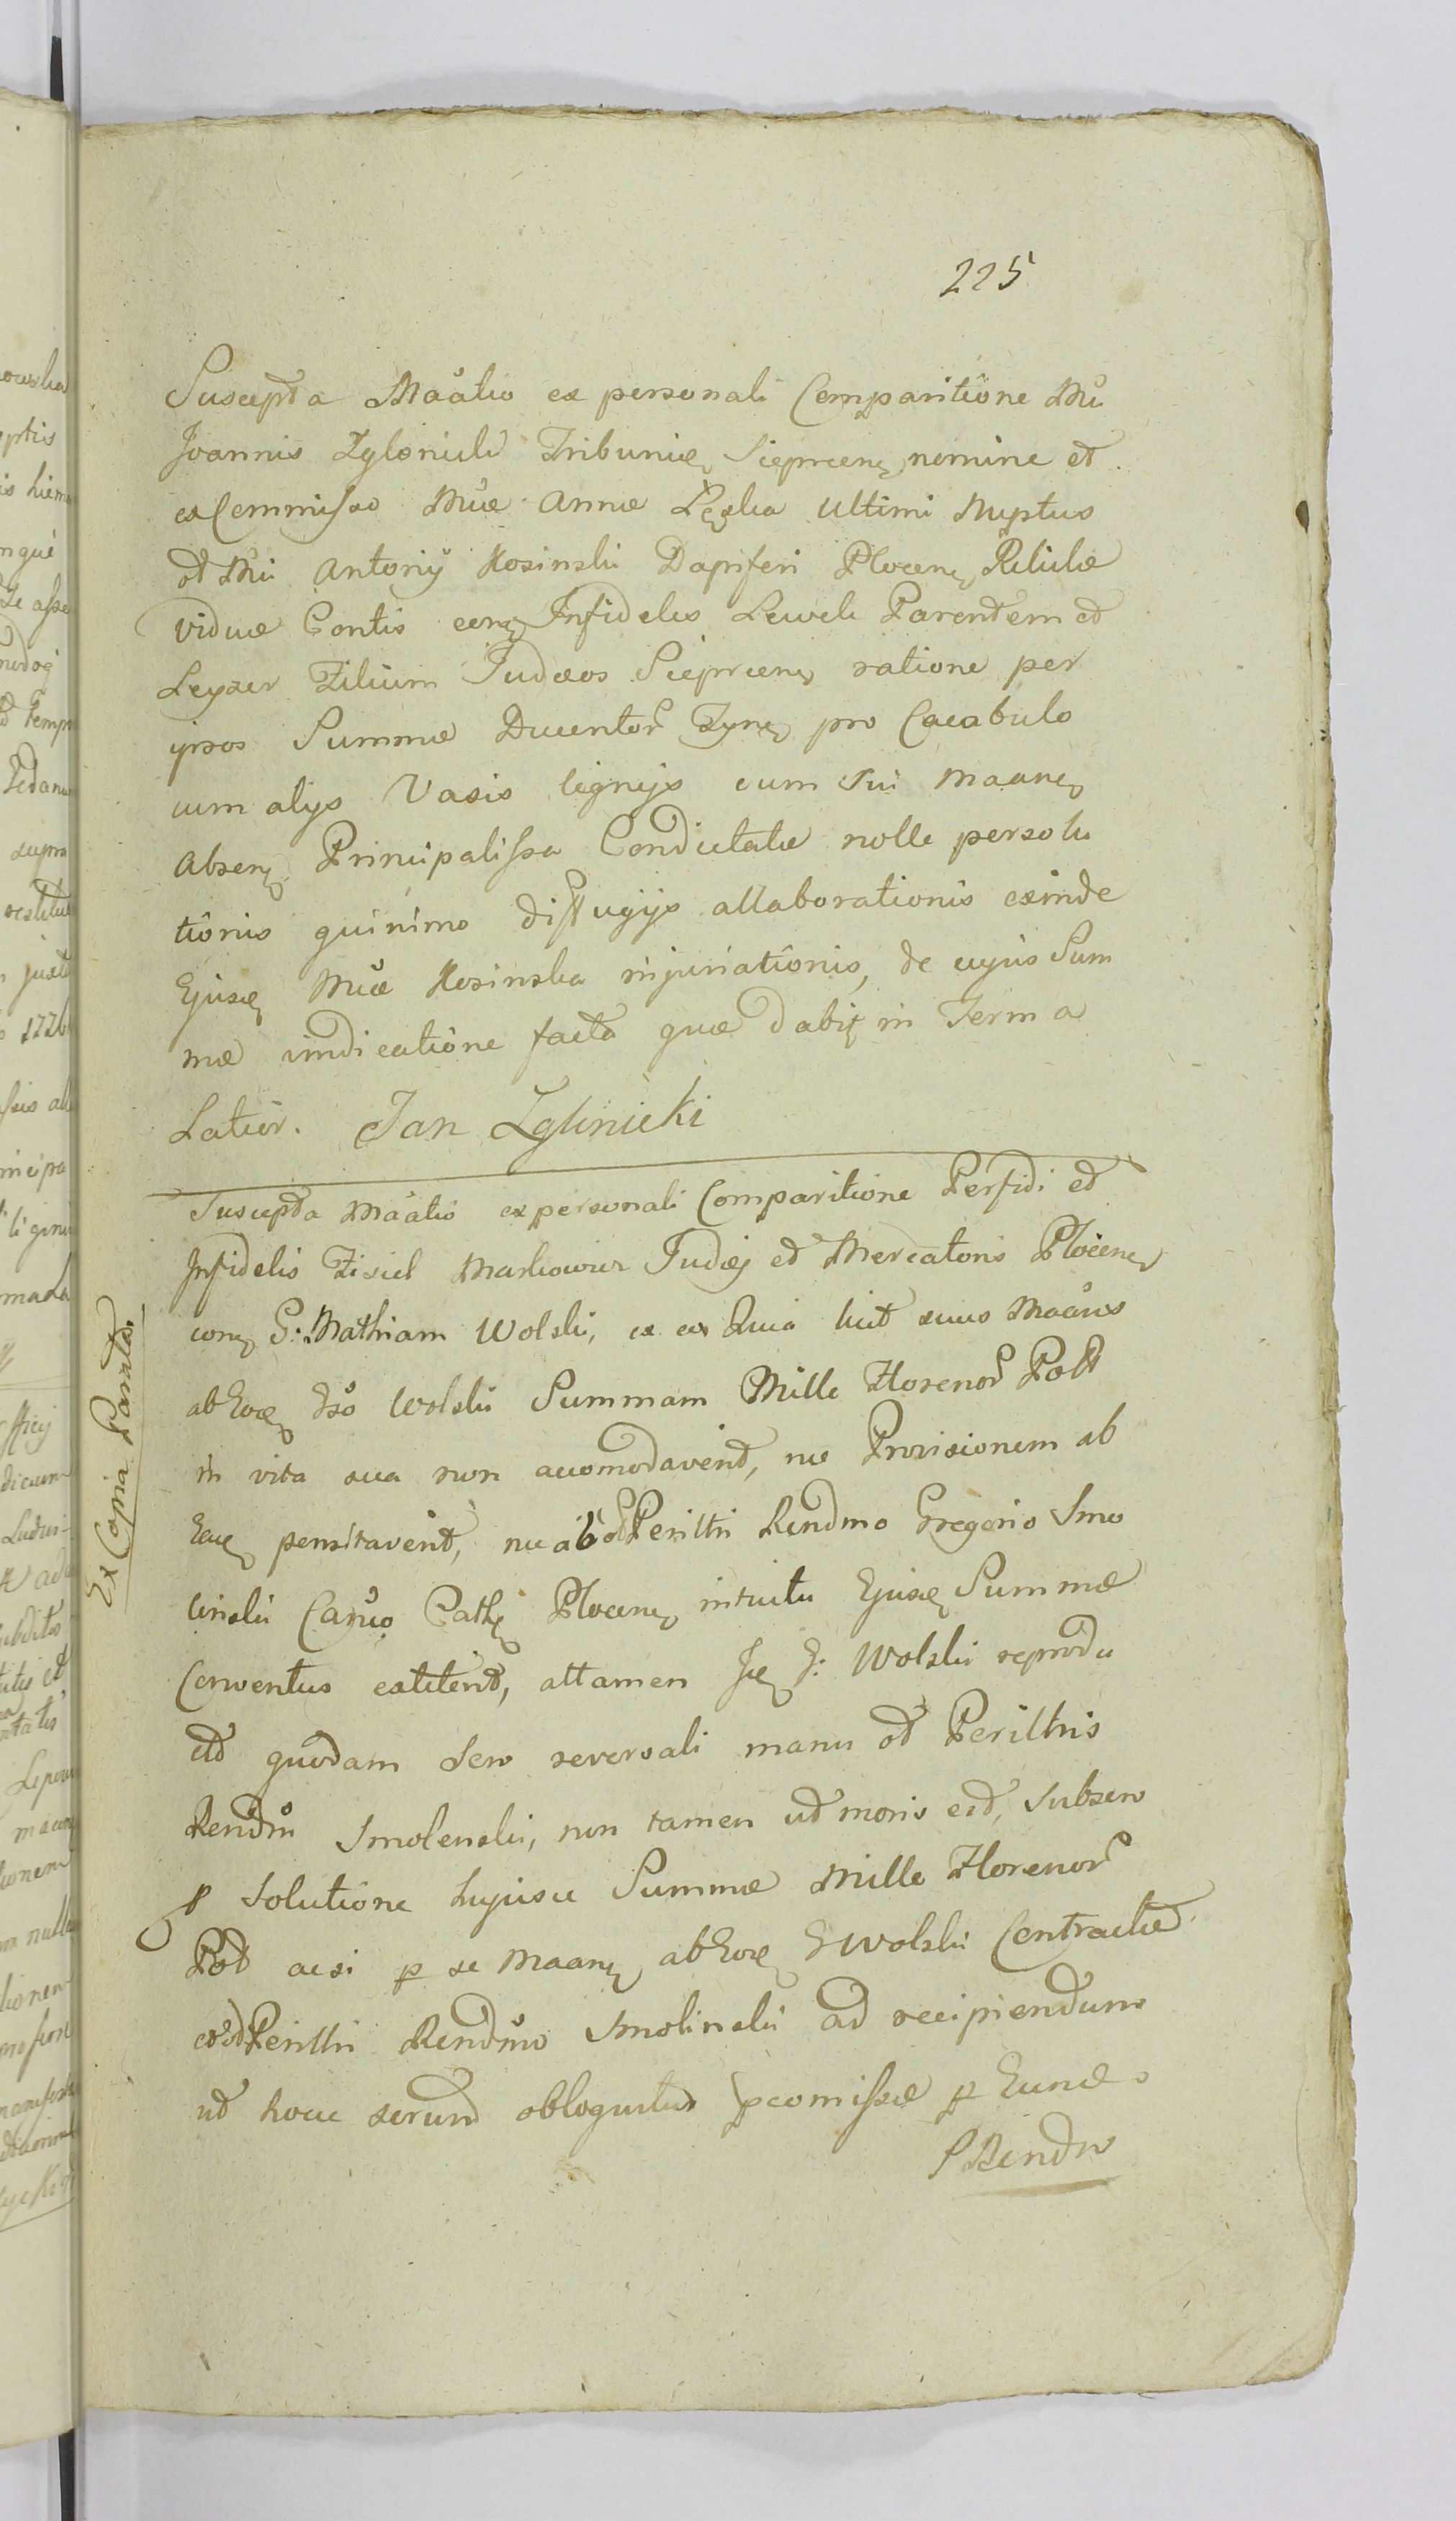 225
Suscepta Maãtio ex personali Comparitione Mũi
Joannis Zglenicki Tribunid Sieprcen nomine et
ex Commisso Mũæ Annæ Łęska ultimi Nuptus
et Mũi Antonij Kosinski Dapiferi Plocen Relictæ
viduæ Contis con Infideles Lewek Parentem et
Leyzer Filium Judæos Sieprcen ratione per
ipsos Summæ Ducentor Tyn pro Cacabulo
cum alijs Vasis lignijs cum Sui Maan
absen Principalissa Condictatæ nolle persolu
tionis quinimo diffugijs allaborationis exinde
Ejusd Mũæ Kosinska injuriationis, de cujus Sum
mæ vindicatione facta quæ dabit in Term a
Latior. Jan Zglinicki
Suscepta Maãtio ex personali Comparitione Perfidi et
Infidelis Zisiel Markowicz Judæj et Mercatoris Plocen
con G: Mathiam Wolski, ex eo Quia licet suus Maãnus
ab Eod Gso Wolski Summam Mille Florenor Pol
in vita sua non accomodaverit, nec Provisionem ab
Eaq pensitaverit, nec ab od Perilltri Rendmo Gregorio Smo
linski Cañco Cath Plocen intuitu Ejusd Summæ
Conventus extiterit, attamen Jd G: Wolski reprodu
cto quodam Sero reversali manu od Perilltris
Rendmi Smolenski, non tamen ut moris est, Subscro
p Solutione hujusce Summæ Mille Florenor
Pol acsi p se Maan ab Eod G Wolski Contractæ
eo od Perilltri Rendmo Smolinski ad recipiendum
ut hocce serund obloquitur pcomissæ p Eund
P Rendm
Ex Copia Parata.